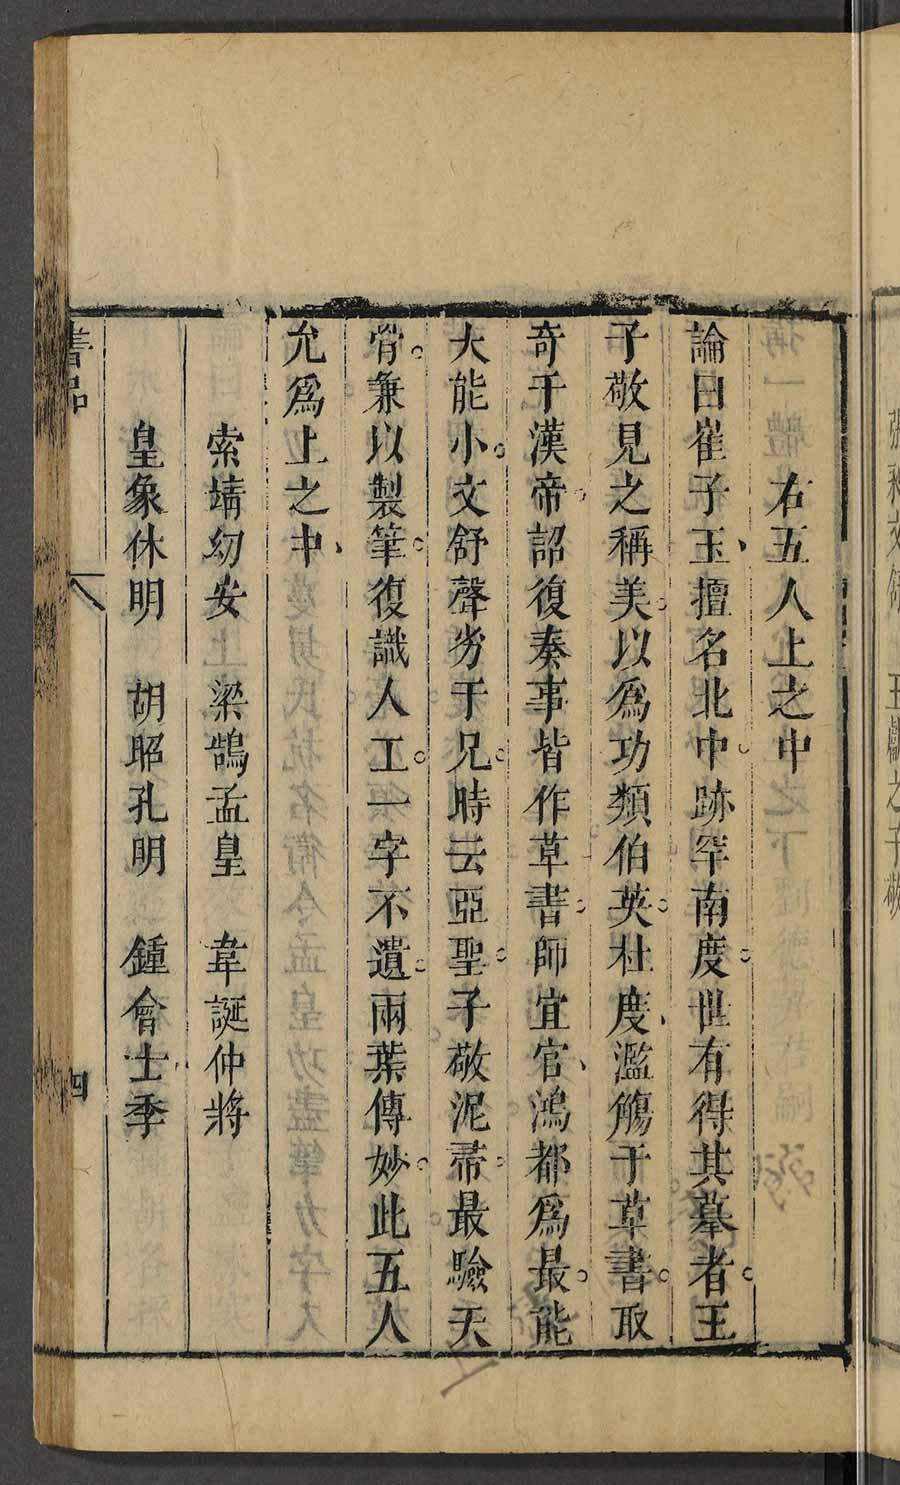 右五人上之中
論曰崔子玉擅名北中跡罕南度世有得其摹者王
子敬見之稱美以爲功類伯英杜度濫觴于草書取
奇于漢帝詔復奏事皆作草書師宜官鴻都爲最能
大能小文舒聲劣于兄時云亞聖子敬泥帚最驗天
骨兼以製筆復識人工一字不遺兩葉傳妙此五人
允爲上之中
索靖幼安 梁鵠孟皇 韋誕仲將
皇象休明 胡昭孔明 鍾會士季
書品
四